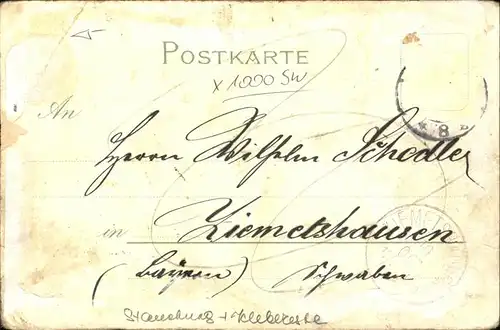 POSTKARTE
x 1000 SW
An
Herrn Wilhelm Schedler
in Ziemetshausen
(Bayern) Schwaben
Stauchung + Klebereste
ZIEMET
8